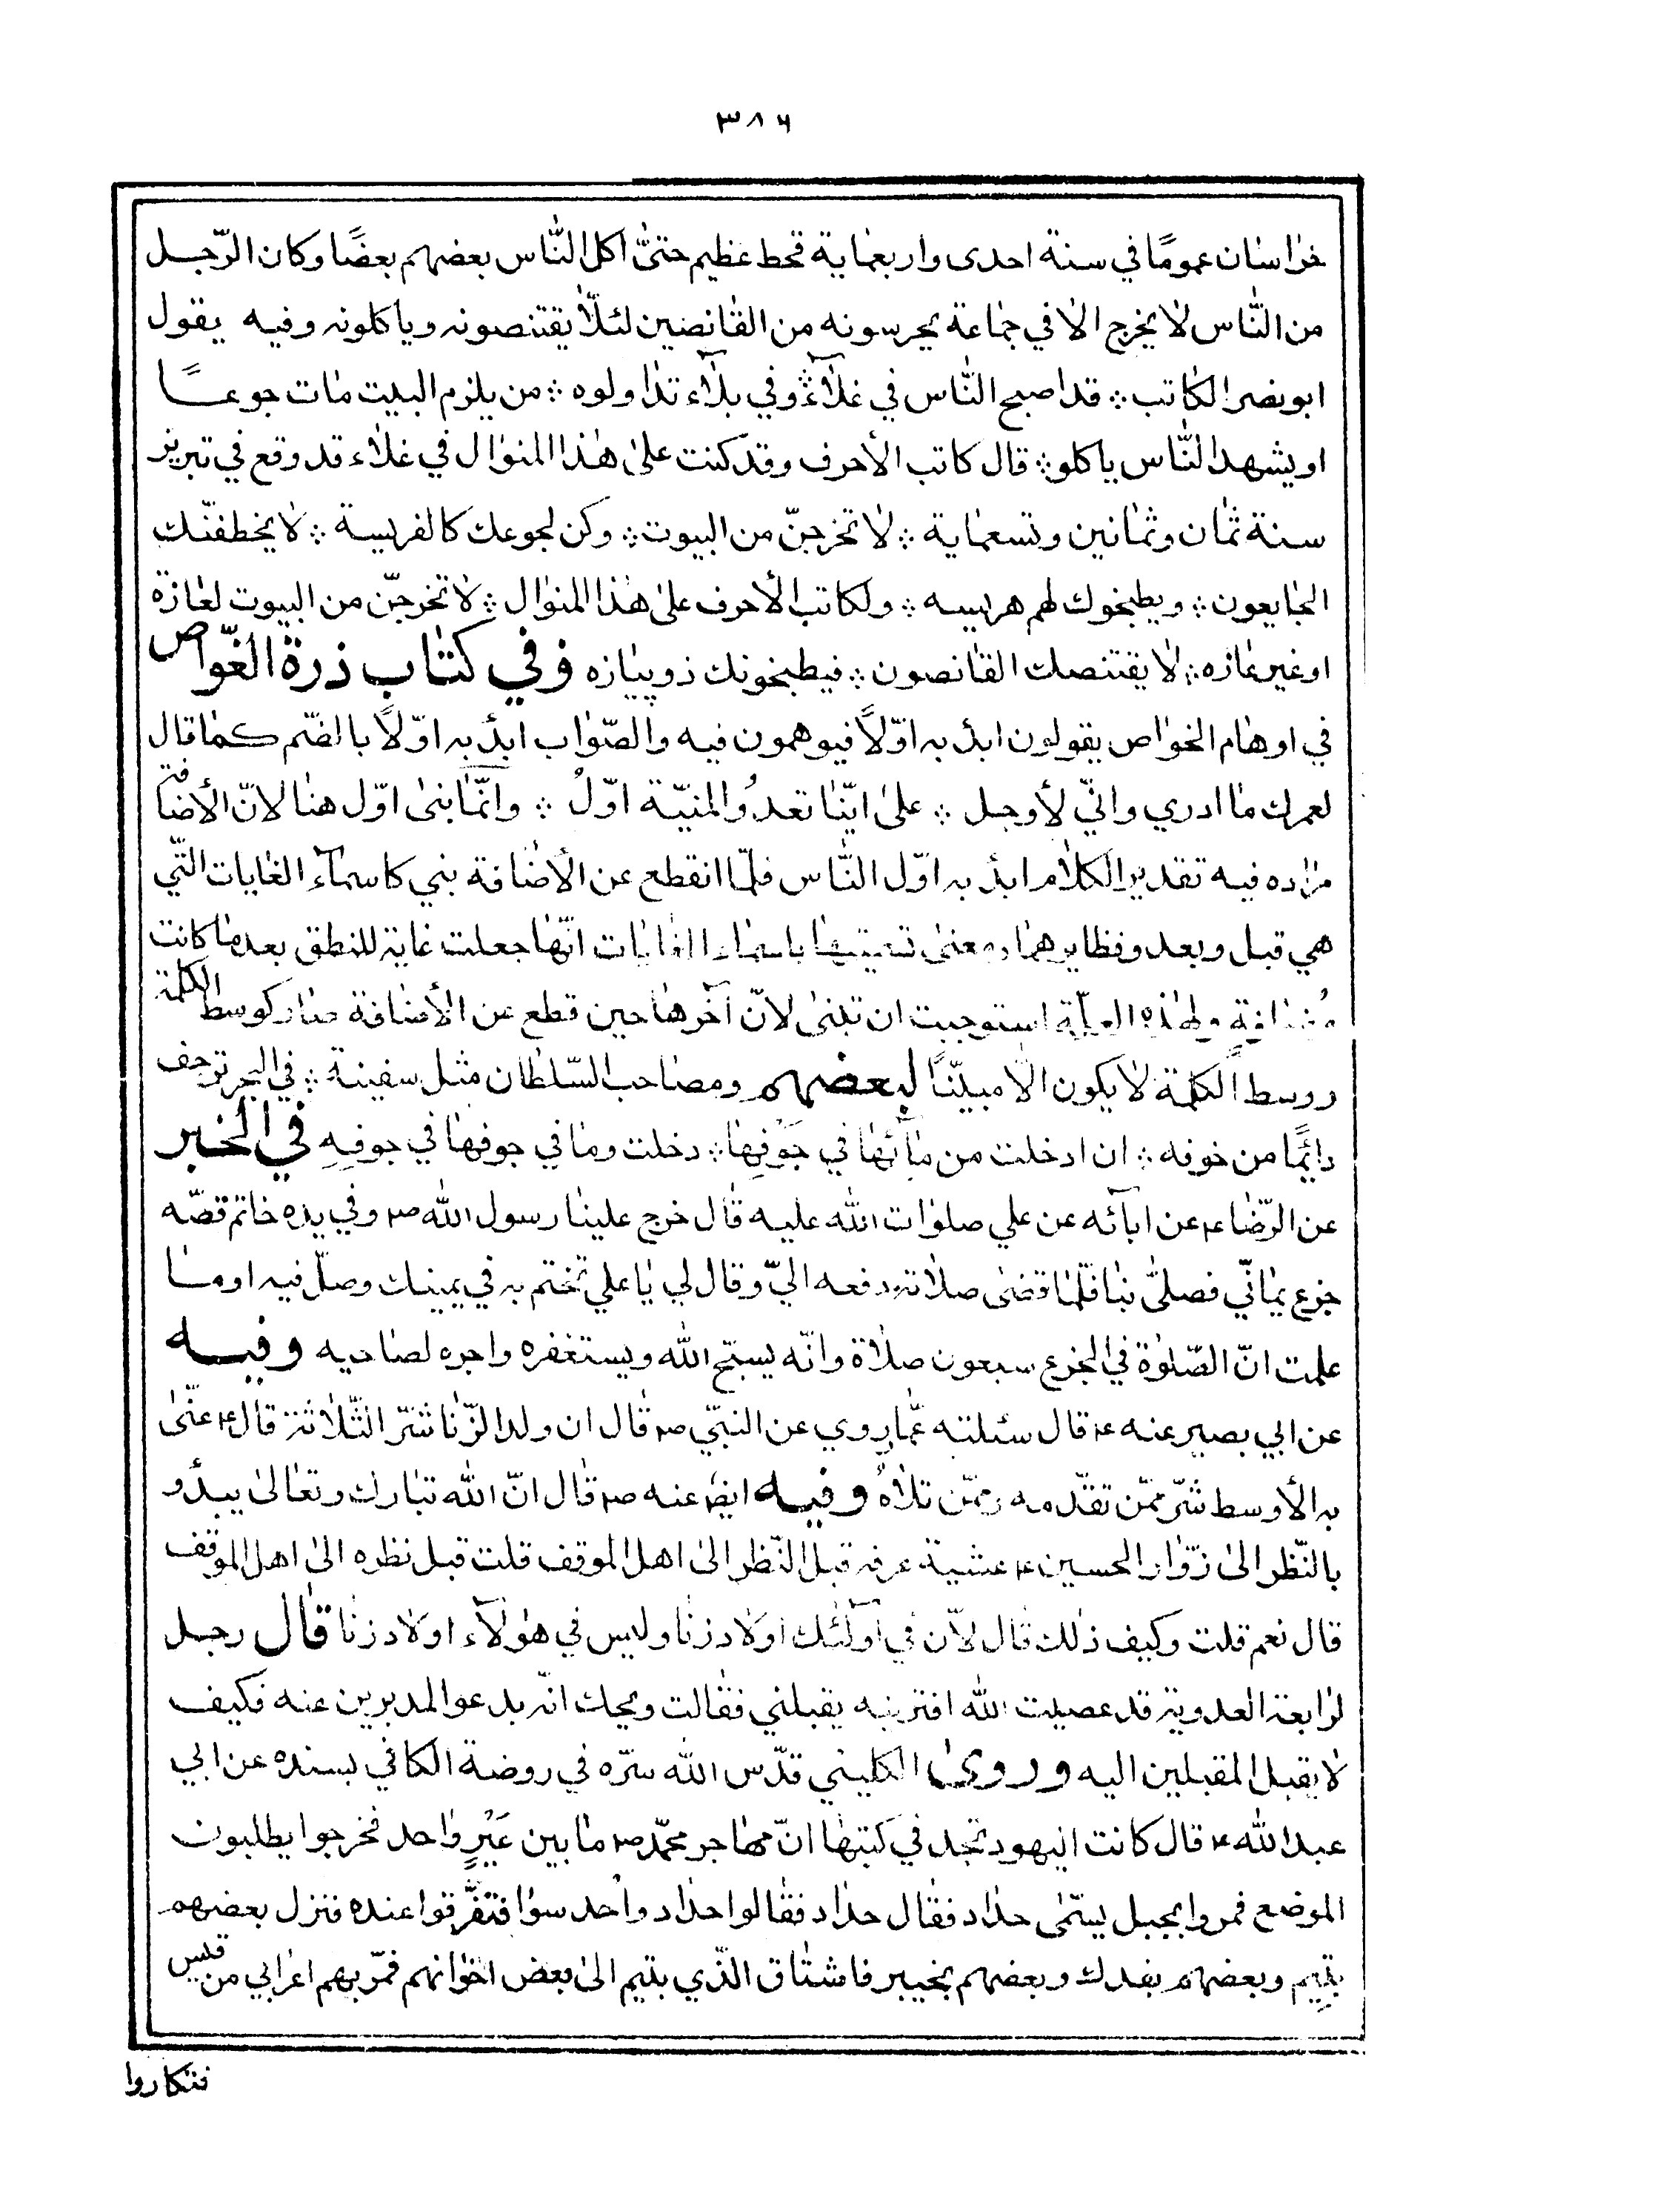 ٣٨٦
خراسان عمومًا في سنة احدى واربعماية قحط عظيم حتىّ اكل النّاس بعضهم بعضًا وكان الرّجل
من النّاس لا يخرج الا في جماعة يحرسونه من القانصين لئلّا يقتنصونه وياكلونه وفيه يقول
ابو نصر الكاتب ؞ قد اصبح النّاس في غلاءٍ ؞ وفي بلآء تداولوه ؞ من يلزم البيت مات جوعًا
او يشهد النّاس ياكلو ؞ قال كاتب الأحرف وقد كنت على هذا المنوال في غلاء قد وقع في تبريز
سنة ثمان وثمانين وتسعماية ؞ لا تخرجنّ من البيوت ؞ وكن لجوعك كالفريسة ؞ لا يخطفنّك
الجايعون ؞ ويطبخوك لهم هريسه ؞ ولكاتب الأحرف على هذا المنوال ؞ لا تخرجنّ من البيوت لغازة
او غير غازه ؞ لا يقتنصك القانصون ؞ فيطبخونك ذو پيازه وفي كتاب ذرة الغوّاص
في اوهام الخواص يقولون ابدٔ به اوّلاً فيوهمون فيه والصّواب ابدٔ به اوّلاً بالضّم كما قال
لعمرك ما ادري وانّي لأوجل ؞ على ايّنا تعدُو المنيّة اوّلُ ؞ وانّما بنى اوّل هنا لانّ الأضافة
مراده فيه تقدير الكلام ابدٔ به اوّل النّاس فلمّا انقطع عن الأضافة بني كاسمآء الغايات التّي
هي قبل وبعد ونظايرهما ومعنى تسميتها باسماء الغايات انّها جعلت غاية للنطق بعد ما كانت
مُضافة ولهذه العلّة استوجبت ان تبنى لانّ آخرها حين قطع عن الأضافة صار كوسط الكلمة
ووسط الكلمة لا يكون الّا مبيّنًا لبعضهم ومصاحب السّلطان مثل سفينة ؞ في البحر ترجف
دائمًا من خوفه ؞ ان ادخلت من مآئها في جَوْفِها ؞ دخلت وما في جوفها في جوفِهِ في الخبر
عن الرّضا ع عن ابآئه عن علي صلوات الله عليه قال خرج علينا رسول الله ص وفي يده خاتم فصّه
جزع يمانّي فصلىّ بنا فلما قضى صلاته دفعه اليّ وقال لي يا علي تختم به في يمينك وصلّ فيه او ما
علمت انّ الصّلوة في الجزع سبعون صلاة وانّه يسبّح الله ويستغفره واجره لصاحبه وفيه
عن ابي بصير عنه ع قال سئلته عمّا روي عن النبيّ ص قال ان ولد الزّنا شرّ الثّلاثة قال ع عنّى
به الأوسط شرّ ممّن تقدّمه وممّن تلاهُ وفيه ايضًا عنه ص قال انّ الله تبارك وتعالى يبدٔو
بالنّظر الى زوّار الحسين ع عشية عرفه قبل النّظر الى اهل الموقف قلت قبل نظره الى اهل الموقف
قال نعم قلت وكيف ذلك قال لانّ في اولٓئك اولاد زنا وليس في هؤلآء اولاد زنا قال رجل
لرابعة العدوية قد عصيت الله افترينه يقبلني فقالت ويحك انّه يدعو المدبرين عنه فكيف
لا يقبل المقبلين اليه وروى الكليني قدّس الله سرّه في روضة الكافي بسنده عن ابي
عبد الله ع قال كانت اليهود تجد في كتبها انّ مهاجر محمّد ص ما بين عَيْرٍ واحد فخرجوا يطلبون
الموضع فمروا بجبل يسمّى حداد فقال حداد فقالوا حداد واُحد سوا فتفّرقوا عنده فنزل بعضهم
بتيم وبعضهم بفدك وبعضهم بخيبر فاشتاق الذّي بتيم الى بعض اخوانهم فمّر بهم اعرابي من قيس
فتكاروا